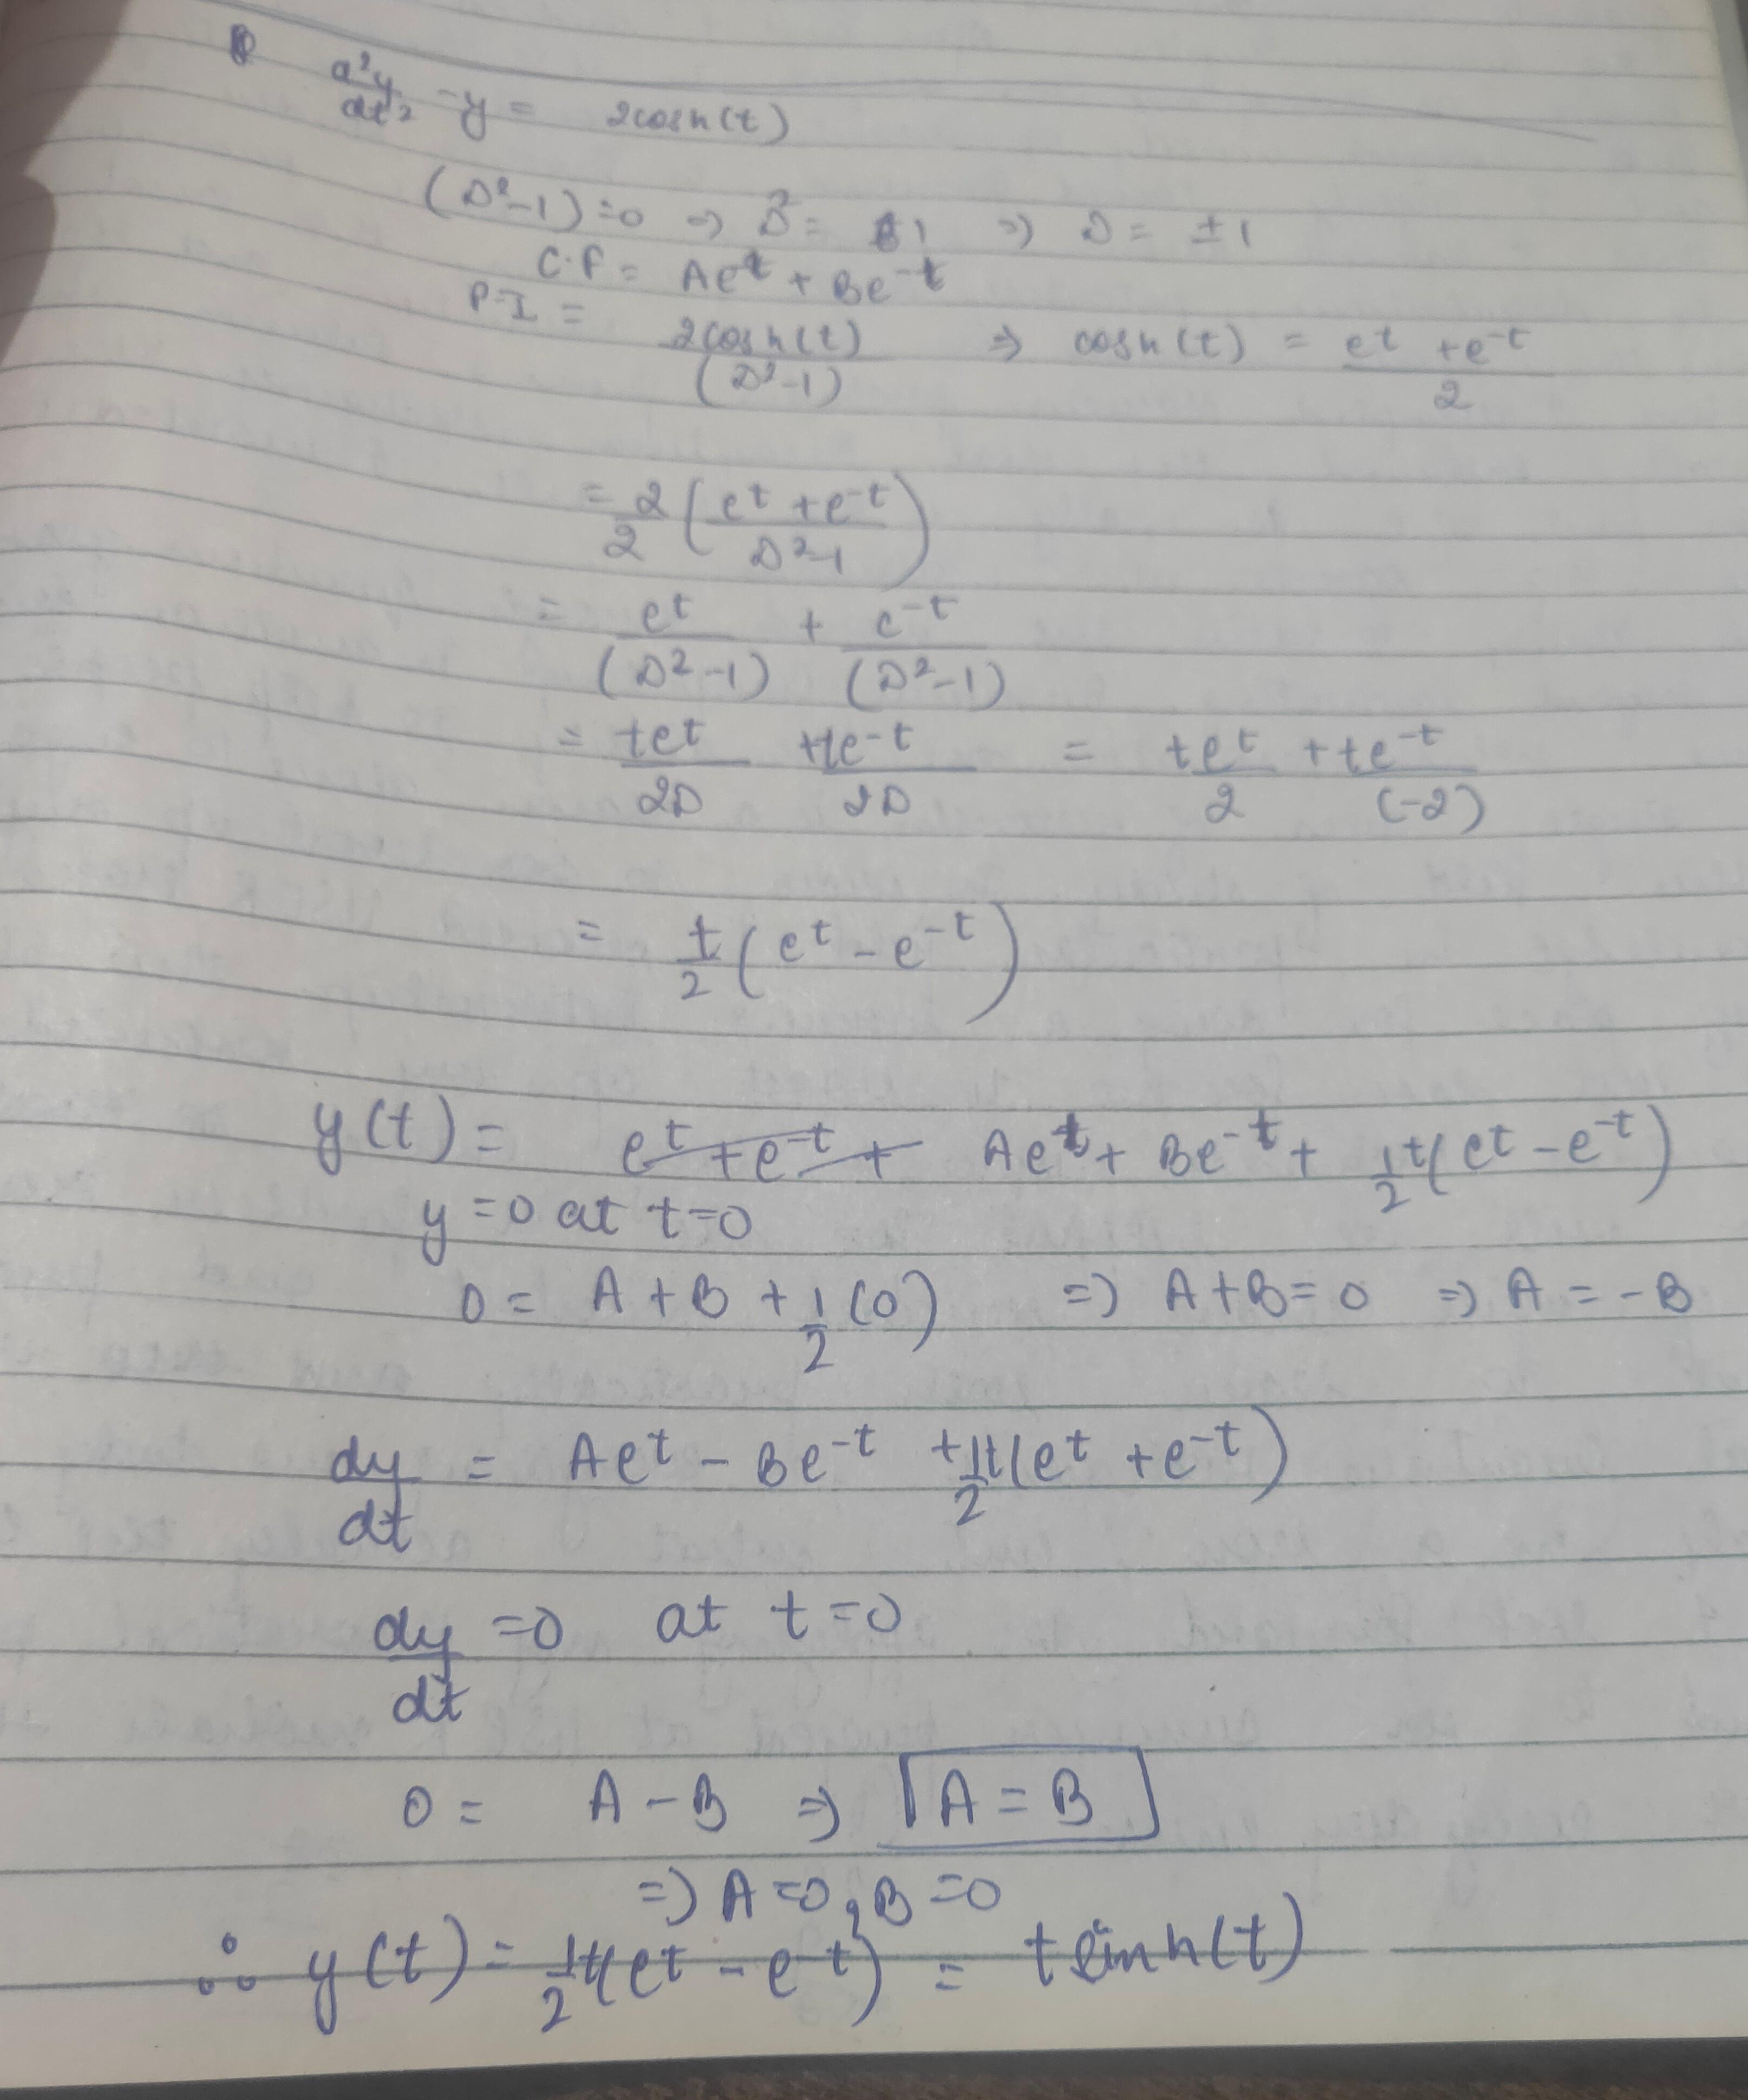 d²y/dt² - y = 2cosh(t)
(D²-1)=0 => D² = 1 => D = ±1
C.F = Ae^t + Be^-t
P.I = 2cosh(t)/(D²-1) => cosh(t) = (e^t + e^-t)/2
= 2/2 ((e^t + e^-t)/(D²-1))
= e^t/(D²-1) + e^-t/(D²-1)
= te^t/2D + te^-t/2D = te^t/2 + te^-t/(-2)
= t/2 (e^t - e^-t)
y(t) = e^t + e^-t + Ae^t + Be^-t + 1/2 t(e^t - e^-t)
y=0 at t=0
0 = A + B + 1/2 (0) => A+B=0 => A = -B
dy/dt = Ae^t - Be^-t + 1/2 t(e^t + e^-t)
dy/dt =0 at t=0
0 = A - B => A = B
=> A=0, B=0
∴ y(t) = 1/2 t(e^t - e^-t) = t sinh(t)